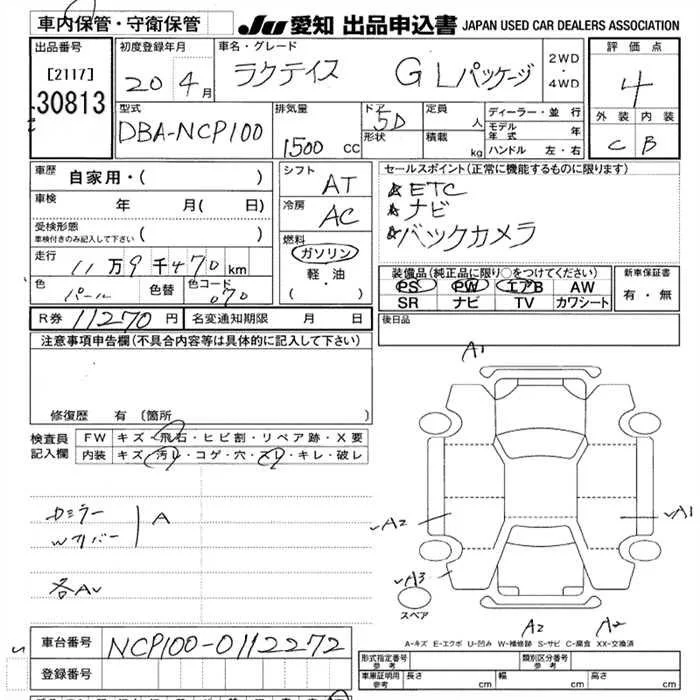 車内保管・守衛保管
JU 愛知 出品申込書 JAPAN USED CAR DEALERS ASSOCIATION
出品番号
[2117]
30813
初度登録年月
20 4月
車名・グレード
ラクティス GLパッケージ
2WD
・
4WD
評価点
4
外装 内装
C B
型式
DBA-NCP100
排気量
1500 cc
ドア
5D
形状
定員
人
積載
kg
ディーラー・並行
モデル年式 年
ハンドル 左・右
車歴 自家用・( )
車検 年 月( 日)
受検形態
車検付きのみ記入して下さい ( )
走行 11万9千470km
色 パール 色替 色コード 070
シフト AT
冷房 AC
燃料
ガソリン
軽・油
( ・ )
セールスポイント(正常に機能するものに限ります)
☆ETC
☆ナビ
☆バックカメラ
装備品(純正品に限り○をつけてください)
PS PW エアB AW
SR ナビ TV カワシート
新車保証書
有・無
R券 11270円 名変通知期限 月 日
後日品
注意事項申告欄(不具合内容等は具体的に記入して下さい)
修復歴 有(箇所
検査員
記入欄
FW キズ・飛石・ヒビ割・リペア跡・X要
内装 キズ・汚レ・コゲ・穴・スレ・キレ・破レ
Dミラー
Wカバー
A
各A
A1
A2
A1
A3
スペア
A2 A2
A-キズ E-エクボ U-凹み W-補修跡 S-サビ C-腐食 XX-交換済
車台番号 NCP100-0112272
登録番号
形式指定番号
参考
類別区分番号
参考
車庫証明用
参考
長さ cm 幅 cm 高さ cm